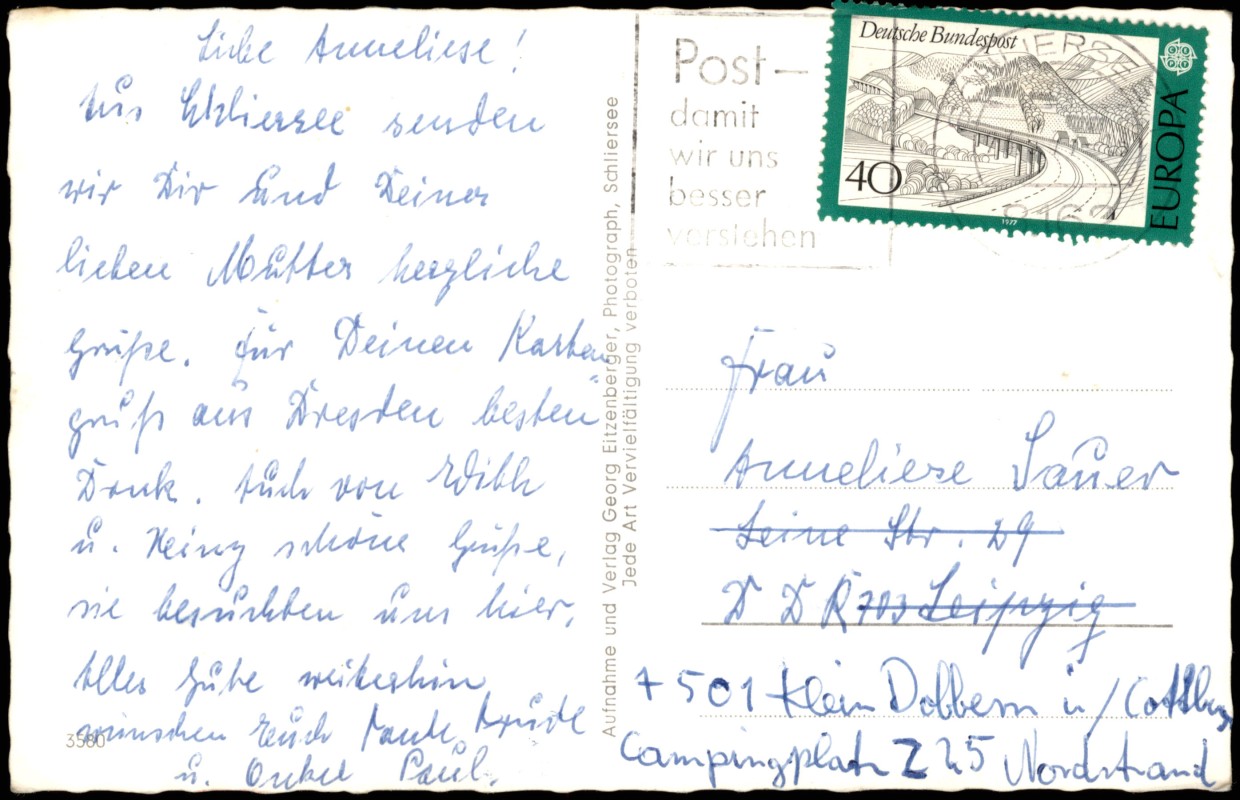 Liebe Anneliese!
Aus Schliersee senden
wir Dir und Deiner
lieben Mutter herzliche
Grüße. Für Deinen Karten
gruß aus Dresden besten
Dank. Auch von
u. Heinz schöne Grüße,
sie besuchten uns hier.
Alles Gute weiterhin
wünschen Euch Tante Trude
u. Onkel Paul.
3580
Aufnahme und Verlag Georg Eitzenberger, Photograph, Schliersee
Jede Art Vervielfältigung verboten
Post –
damit
wir uns
besser
verstehen
SCHLIERSEE
8162
Deutsche Bundespost
40
1977
EUROPA
CEPT
Frau
Anneliese Sauer
Leine Str. 29
DDR 703 Leipzig
7501 Klein Döbbern ü/Cottbus
Campingplatz Z 25 Nordstrand